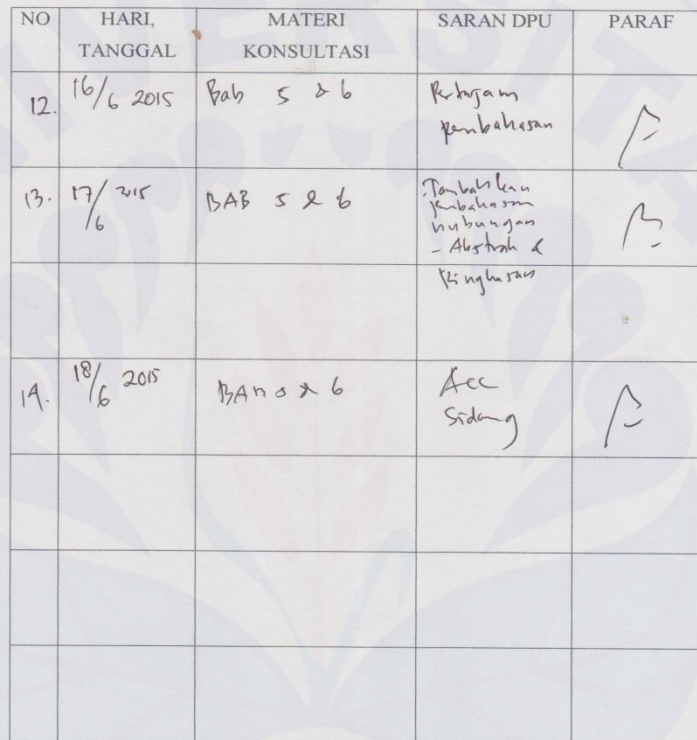 NO HARI, TANGGAL MATERI KONSULTASI SARAN DPU PARAF
12. 16/6 2015 Bab 5 & 6 Pertajam
pembahasan
13. 17/6 2015 BAB 5 & 6 Tambahkan
pembahasan
hubungan
- Abstrak &
Ringkasan
14. 18/6 2015 & 6 Acc
Sidang